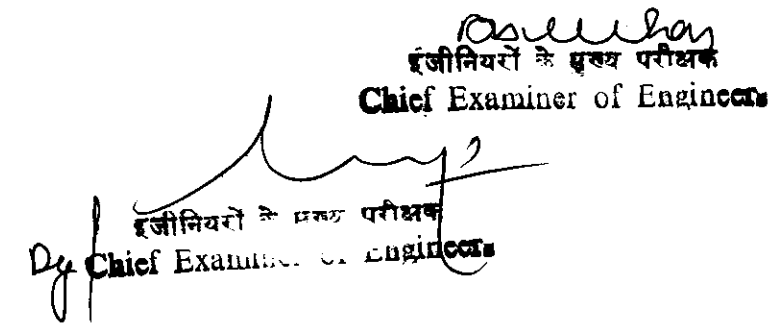 इंजीनियरों के मुख्य परीक्षक
Chief Examiner of Engineers
इंजीनियरों के मुख्य परीक्षक
Dy Chief Examiner of Engineers